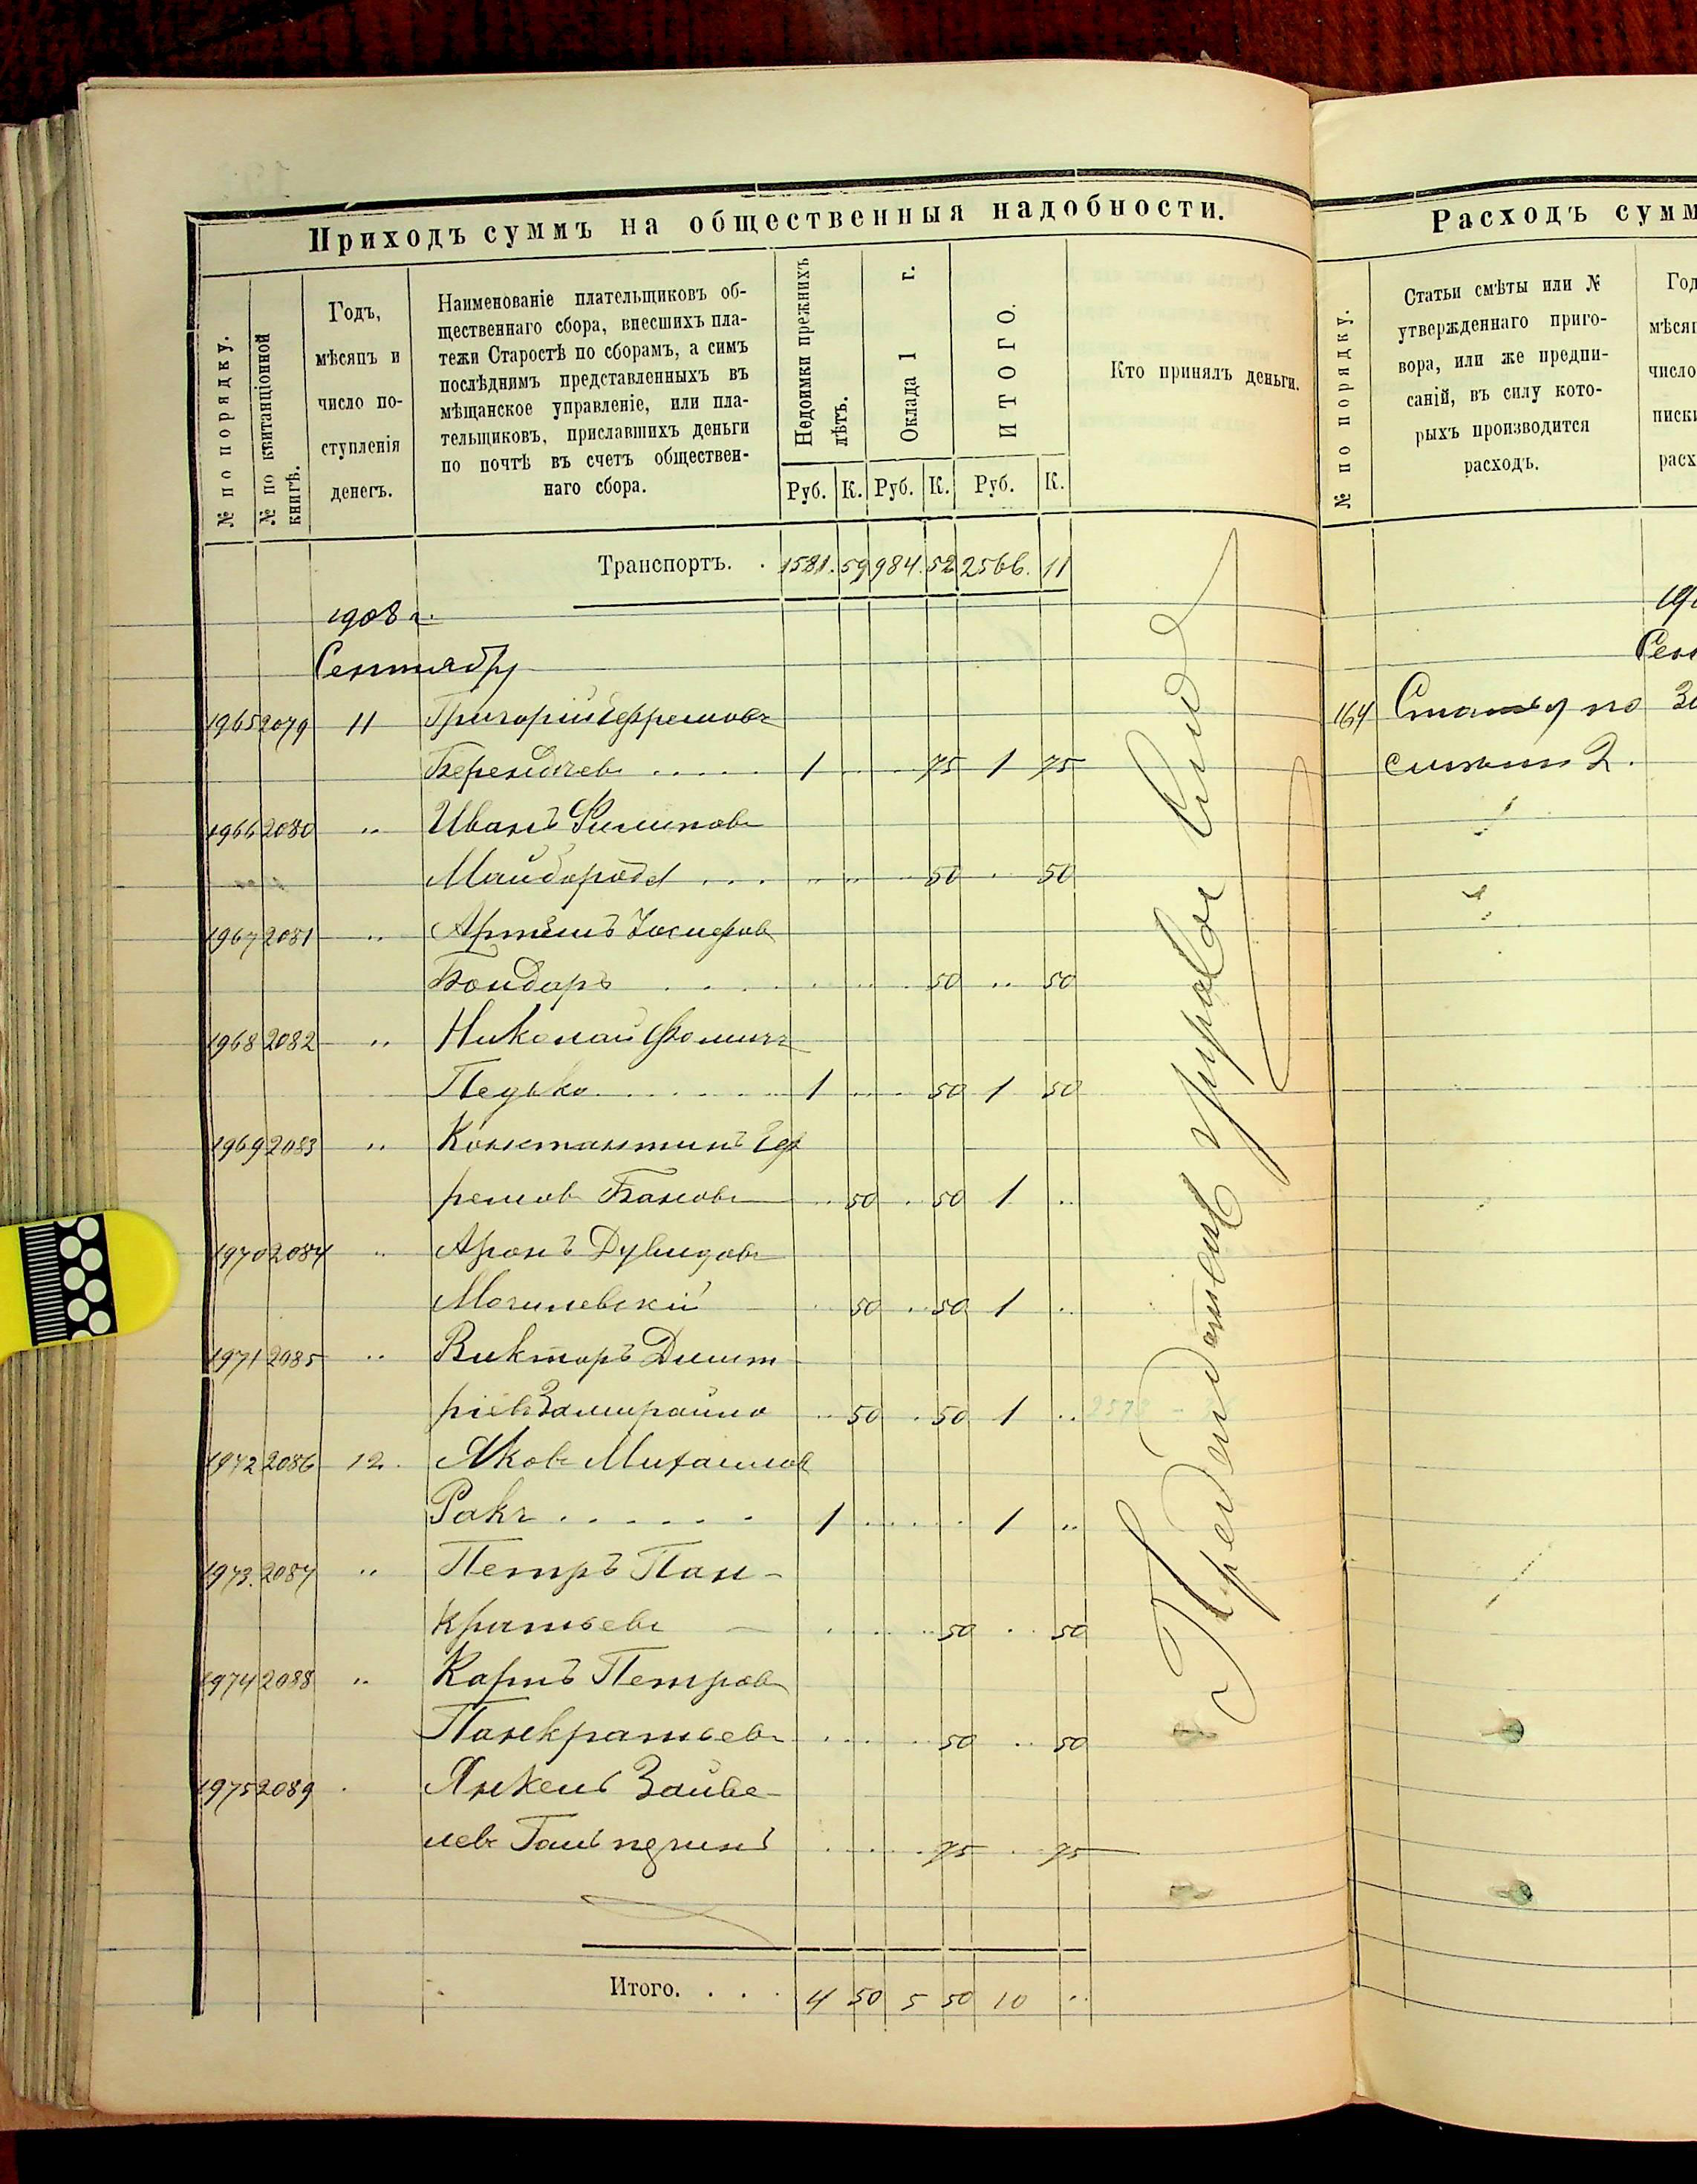 Приходъ суммъ на общественныя надобности.
№ по порядку.
№ по квитанціоной книгѣ.
Годъ,
мѣсяцъ и
число по-
ступленія
денегъ.
Наименованіе плательщиковъ об-
щественнаго сбора, внесшихъ пла-
тежи Старостѣ по сборамъ, а симъ
послѣднимъ представленныхъ въ
мѣщанское управленіе, или пла-
тельщиковъ, приславшихъ деньги
по почтѣ въ счетъ обществен-
наго сбора.
Недоимки прежнихъ
лѣтъ.
Оклада 1 г.
ИТОГО.
Руб. К. Руб. К. Руб. К.
Кто принялъ деньги.
Транспортъ. . 1581. 59 984. 52 2566. 11
1908 г.
Сентябрь
1965 2079 11 Григорій Ефремовъ
75 1 75
1966 2080 " Иванъ Филиповъ
Майборода . . . " " 50 . 50
1967 2081 "
Бондарь . . . . 50 .. 50
1968 2082 " Николай Фомичъ
Педько . . . . . . 1 . . 50 1 50
1969 2083 " Константинъ Еф
ремовъ Бановъ .. 50 . 50 1 ..
1970 2084 " Аронъ Дувидовъ
Могилевскій .. 50 . 50 1 ..
1971 2085 " Викторъ Димит
ріевъ Замирайло .. 50 . 50 1 ..
1972 2086 12. Яковъ Михаиловъ
Ракъ . . . . . . 1 . . . . 1 ..
1973. 2087 " Петръ Пан-
кратьевъ — . . . . 50 . . 50
1974 2088 " Карпъ Петровъ
Панкратьевъ . . . . 50 .. 50
1975 2089 . Янкель Зайве-
левъ Гальперинъ . . . . 75 . 75
Итого. . . . 4 50 5 50 10 ..
Расходъ сумм
№ по порядку.
Статьи смѣты или №
утвержденнаго приго-
вора, или же предпи-
саній, въ силу кото-
рыхъ производится
расходъ.
Год
мѣсяц
число
писк
расх
19
Сен
164